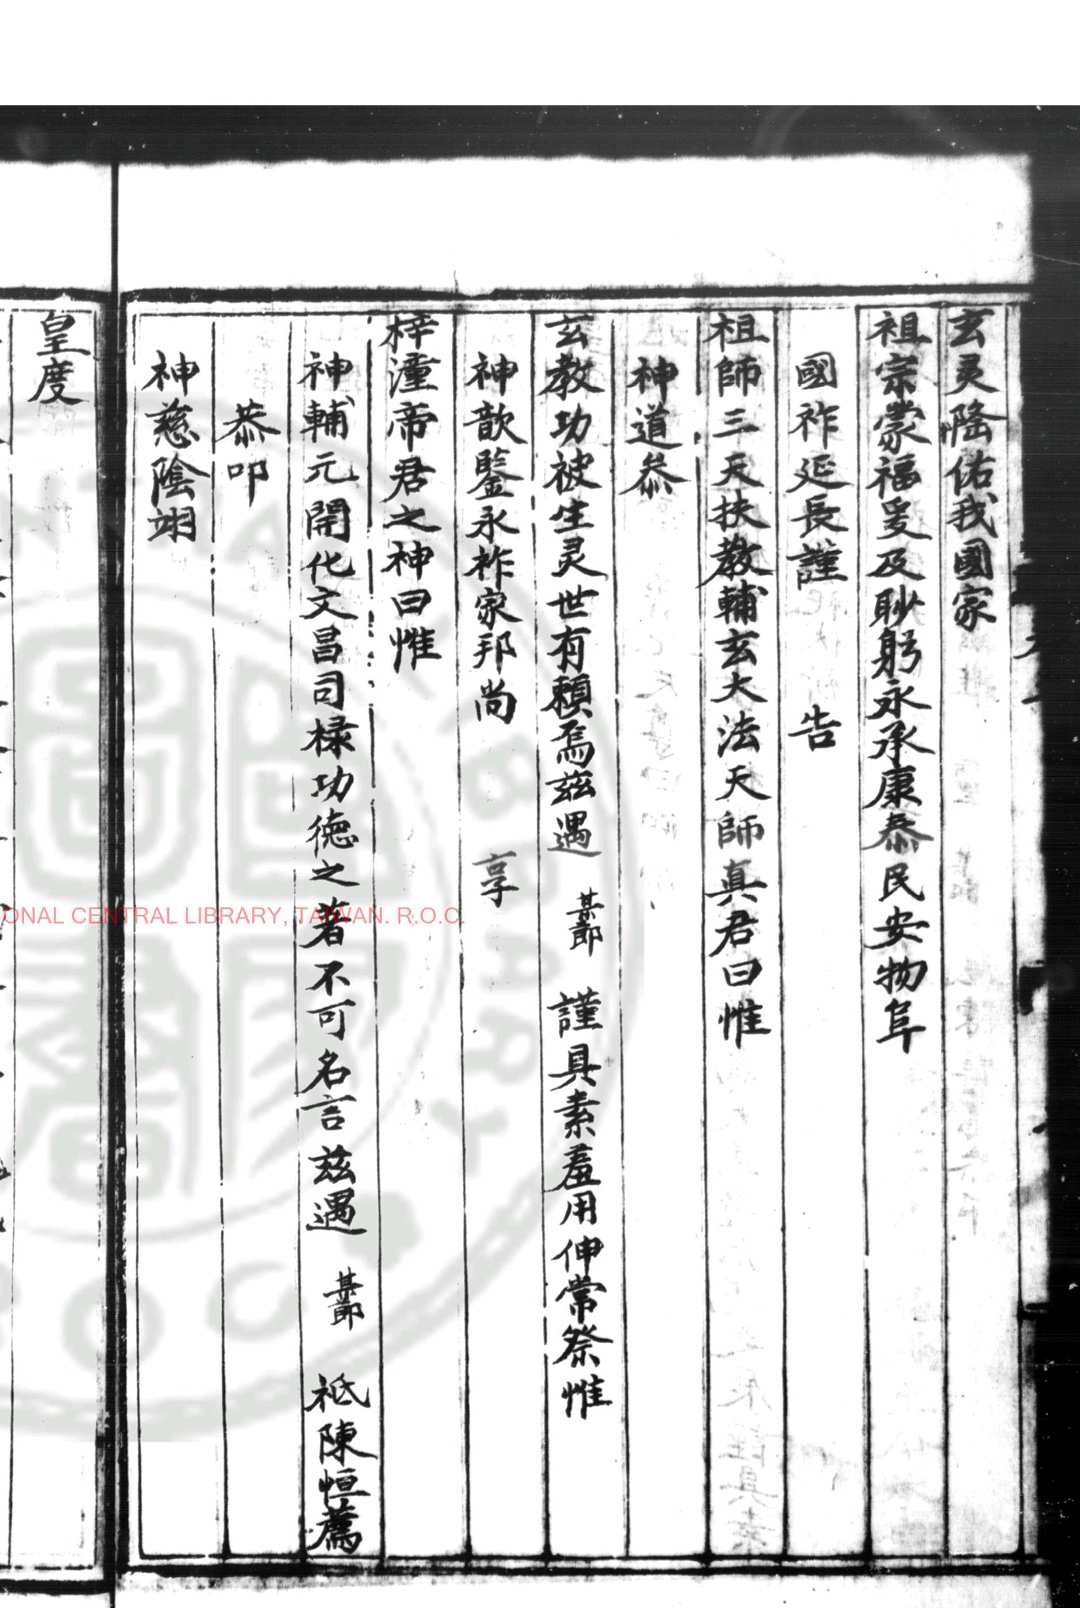 玄灵降佑我國家
祖宗蒙福爰及眇躬永承康泰民安物阜
國祚延長謹 告
祖師三天扶教輔玄大法天師真君曰惟
神道叅
玄教功被生灵世有賴焉兹遇 某節 謹具素羞用伸常祭惟
神歆鑒永祚家邦尚 享
梓潼帝君之神曰惟
神輔元開化文昌司禄功德之著不可名言兹遇 某節 祇陳恒薦
恭叩
神慈陰翊
皇度
NATIONAL CENTRAL LIBRARY, TAIWAN. R.O.C.